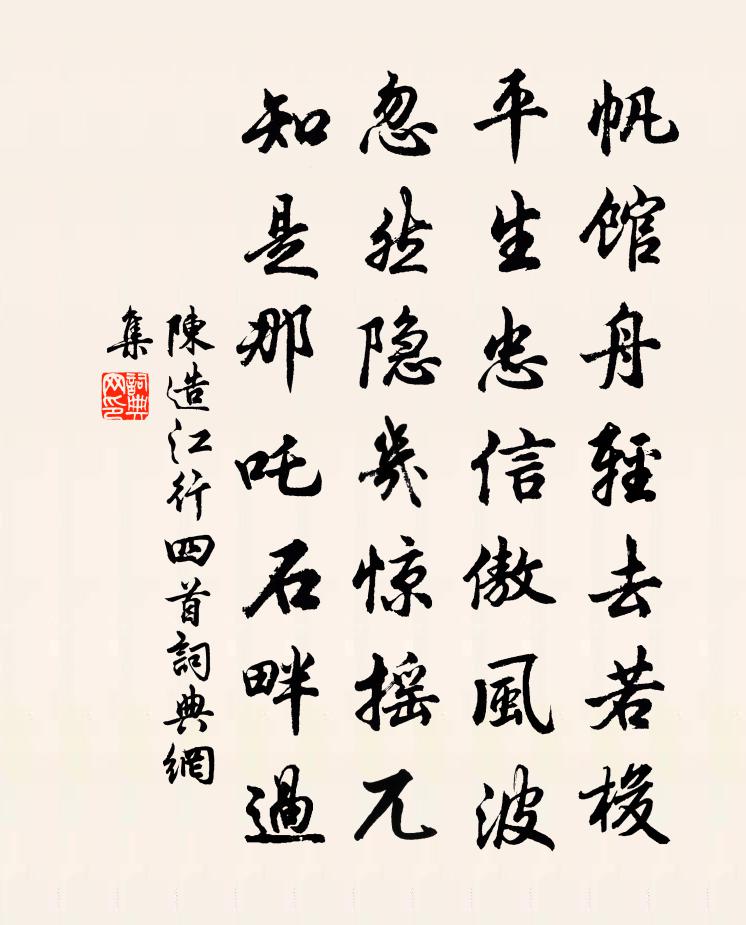 帆馆舟輕去若梭
平生忠信傲風波
忽然隐几惊摇兀
知是那吒石畔過
陳造江行四首詞典網
集
詞典
网印